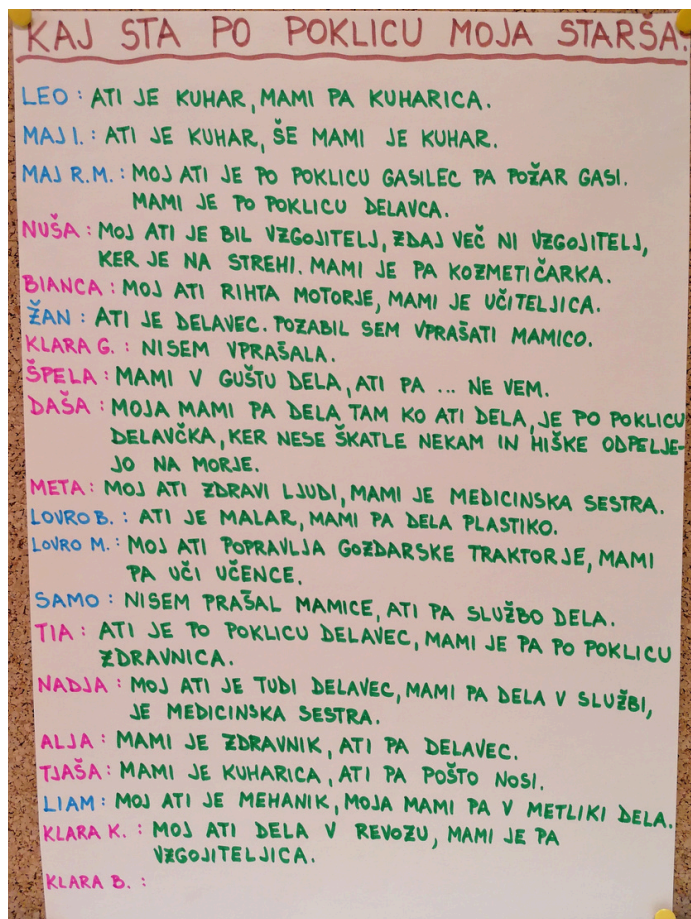 KAJ STA PO POKLICU MOJA STARŠA.
LEO: ATI JE KUHAR, MAMI PA KUHARICA.
MAJ I.: ATI JE KUHAR, ŠE MAMI JE KUHAR.
MAJ R.M.: MOJ ATI JE PO POKLICU GASILEC PA POŽAR GASI.
MAMI JE PO POKLICU DELAVCA.
NUŠA: MOJ ATI JE BIL VZGOJITELJ, ZDAJ VEČ NI VZGOJITELJ,
KER JE NA STREHI. MAMI JE PA KOZMETIČARKA.
BIANCA: MOJ ATI RIHTA MOTORJE, MAMI JE UČITELJICA.
ŽAN: ATI JE DELAVEC. POZABIL SEM VPRAŠATI MAMICO.
KLARA G.: NISEM VPRAŠALA.
ŠPELA: MAMI V GUŠTU DELA, ATI PA ... NE VEM.
DAŠA: MOJA MAMI PA DELA TAM KO ATI DELA, JE PO POKLICU
DELAVČKA, KER NESE ŠKATLE NEKAM IN HIŠKE ODPELJE-
JO NA MORJE.
META: MOJ ATI ZDRAVI LJUDI, MAMI JE MEDICINSKA SESTRA.
LOVRO B.: ATI JE MALAR, MAMI PA DELA PLASTIKO.
LOVRO M.: MOJ ATI POPRAVLJA GOZDARSKE TRAKTORJE, MAMI
PA UČI UČENCE.
SAMO: NISEM PRAŠAL MAMICE, ATI PA SLUŽBO DELA.
TIA: ATI JE PO POKLICU DELAVEC, MAMI JE PA PO POKLICU
ZDRAVNICA.
NADJA: MOJ ATI JE TUDI DELAVEC, MAMI PA DELA V SLUŽBI,
JE MEDICINSKA SESTRA.
ALJA: MAMI JE ZDRAVNIK, ATI PA DELAVEC.
TJAŠA: MAMI JE KUHARICA, ATI PA POŠTO NOSI.
LIAM: MOJ ATI JE MEHANIK, MOJA MAMI PA V METLIKI DELA.
KLARA K.: MOJ ATI DELA V REVOZU, MAMI JE PA
VZGOJITELJICA.
KLARA B.: